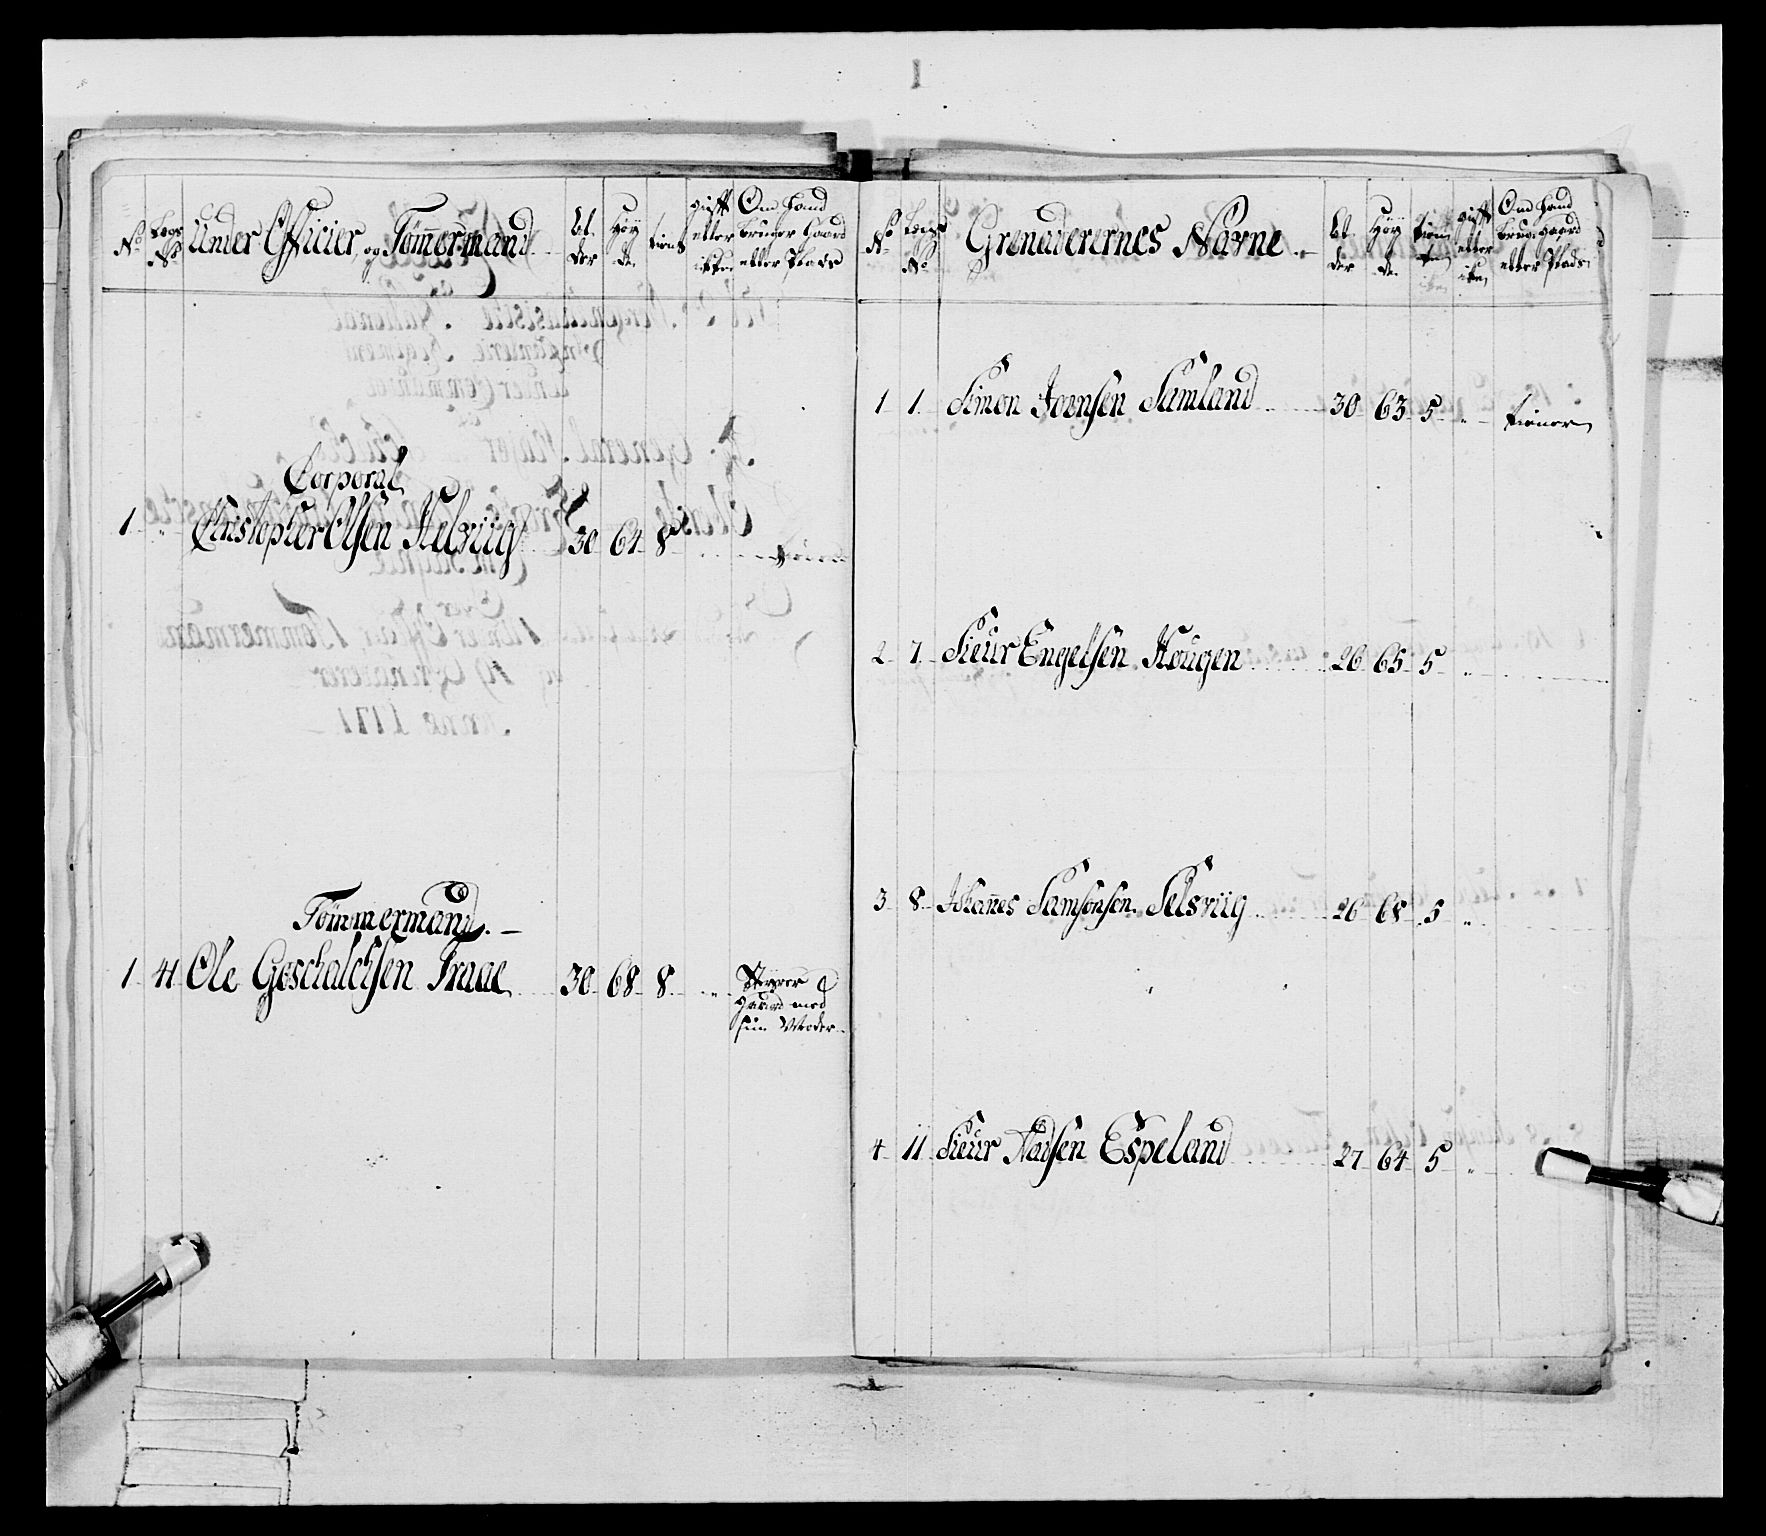 No. Legs No. Under Officier, og Tømermand Al- der Høy de. tienst gift eller ikke Om hand bruger Gaard eller Plads
Corporal
1 " Christopher Olsen Helviig 30 64 8
Tømmermand.
1 41 Ole Goschalchsen Traae 30 68 8 " Styrer Gaard med siin Moder
No. Legs No. Grenaderernes Navne Al- der Høy de. tieniste gift eller ikke Om hand bruger Gaard eller Plads
1 1 Simon Joensen Samland 30 63 5 " tiener
2 7 Sieur Engelsen Hougen 26 65 5 "
3 8 Johañes Samsonsen Selsviig 26 68 5 "
4 11 Sieur Madsen Espeland 27 64 5 "